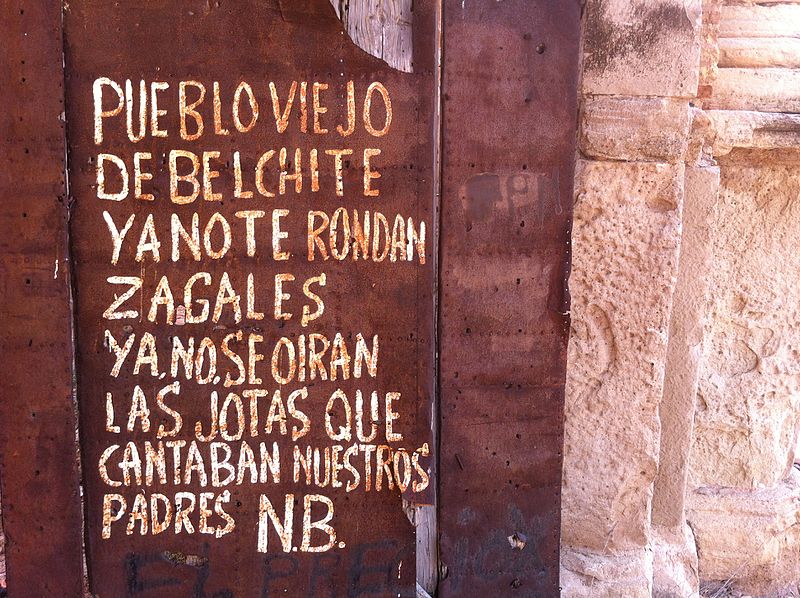 PUEBLO VIEJO
DE BELCHITE
YA NO TE RONDAN
ZAGALES
YA.NO.SE OIRAN
LAS JOTAS QUE
CANTABAN NUESTROS
PADRES N.B.
EL